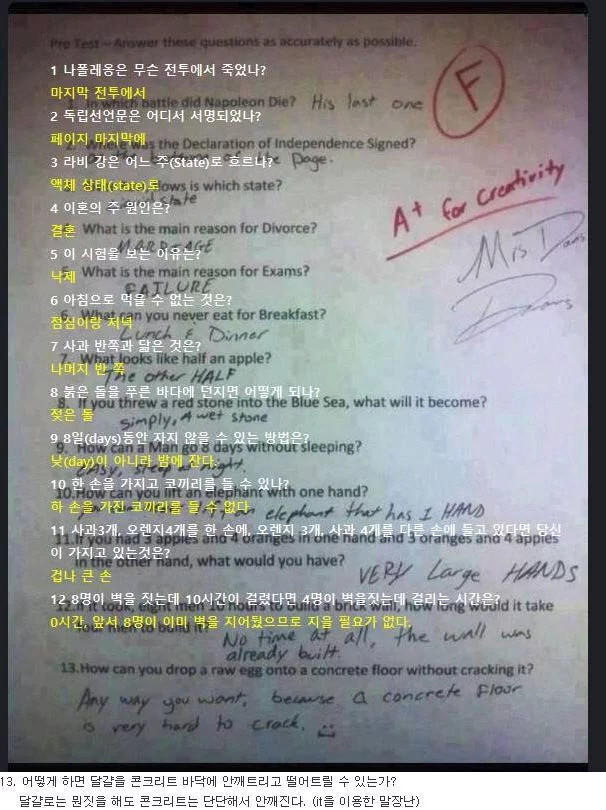 Pre Test – Answer these questions as accurately as possible.
F
1 나폴레옹은 무슨 전투에서 죽었나?
마지막 전투에서
1. In which battle did Napoleon Die? His last one
2 독립선언문은 어디서 서명되었나?
페이지 마지막에
2. Where was the Declaration of Independence Signed?
the Page.
3 라비 강은 어느 주(State)로 흐르나?
액체 상태(state)로
lows is which state?
state
A+ for creativity
4 이혼의 주 원인은?
결혼
4. What is the main reason for Divorce?
MARRIAGE
5 이 시험을 보는 이유는?
낙제
5. What is the main reason for Exams?
FAILURE
6 아침으로 먹을 수 없는 것은?
점심이랑 저녁
6. What can you never eat for Breakfast?
Lunch & Dinner
7 사과 반쪽과 닮은 것은?
나머지 반 쪽
7. What looks like half an apple?
The other HALF
8 붉은 돌을 푸른 바다에 던지면 어떻게 되나?
젖은 돌
8. If you threw a red stone into the Blue Sea, what will it become?
simply, A wet stone
9 8일(days)동안 자지 않을 수 있는 방법은?
낮(day)이 아니라 밤에 잔다.
9. How can a Man go 8 days without sleeping?
night.
10 한 손을 가지고 코끼리를 들 수 있나?
한 손을 가진 코끼리를 들 수 없다
10. How can you lift an elephant with one hand?
elephant that has 1 HAND
11 사과3개, 오렌지4개를 한 손에, 오렌지 3개, 사과 4개를 다른 손에 들고 있다면 당신
이 가지고 있는것은?
겁나 큰 손
11. If you had 3 apples and 4 oranges in one hand and 3 oranges and 4 apples
in the other hand, what would you have?
VERY Large HANDS
12 8명이 벽을 짓는데 10시간이 걸렸다면 4명이 벽을짓는데 걸리는 시간은?
0시간, 앞서 8명이 이미 벽을 지어놨으므로 지을 필요가 없다.
12. If it took, eight men 10 hours to build a brick wall, how long would it take
four men to build it?
No time at all, the wall was
already built.
13. How can you drop a raw egg onto a concrete floor without cracking it?
Any way you want, because a concrete floor
is very hard to crack.
13. 어떻게 하면 달걀을 콘크리트 바닥에 안깨트리고 떨어트릴 수 있는가?
달걀로는 뭔짓을 해도 콘크리트는 단단해서 안깨진다. (it을 이용한 말장난)